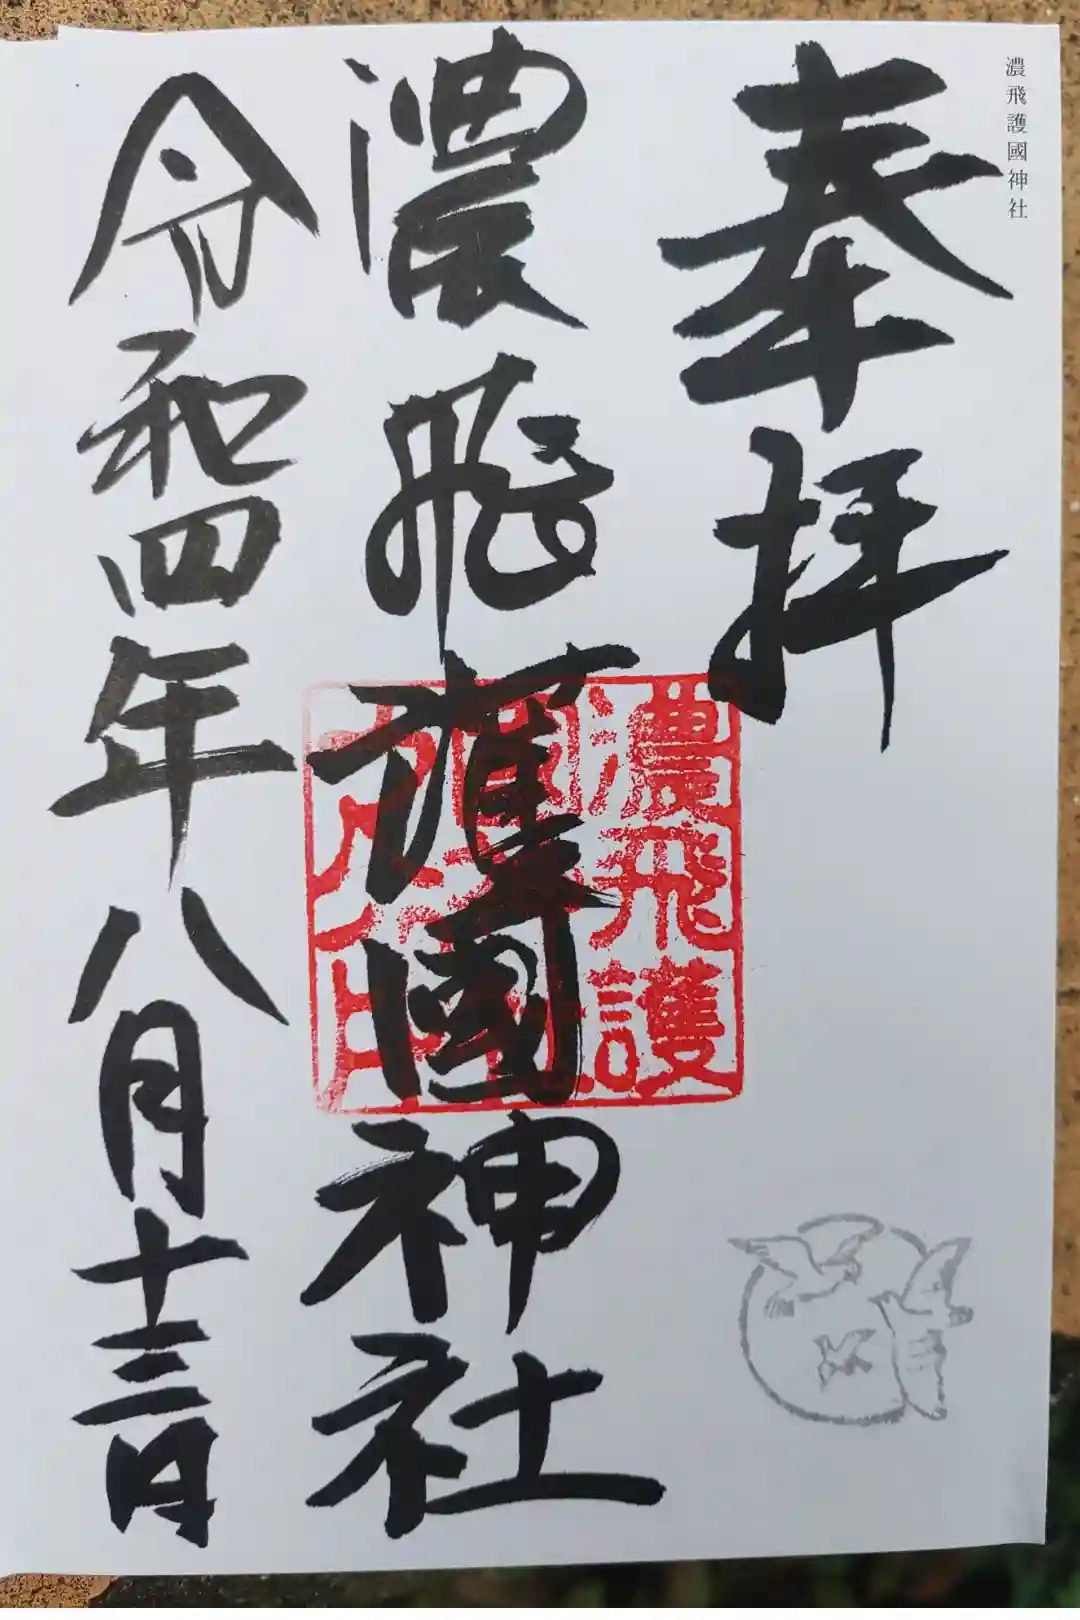 濃飛護國神社
奉拝
濃飛護國神社
令和四年八月十三日
濃飛護